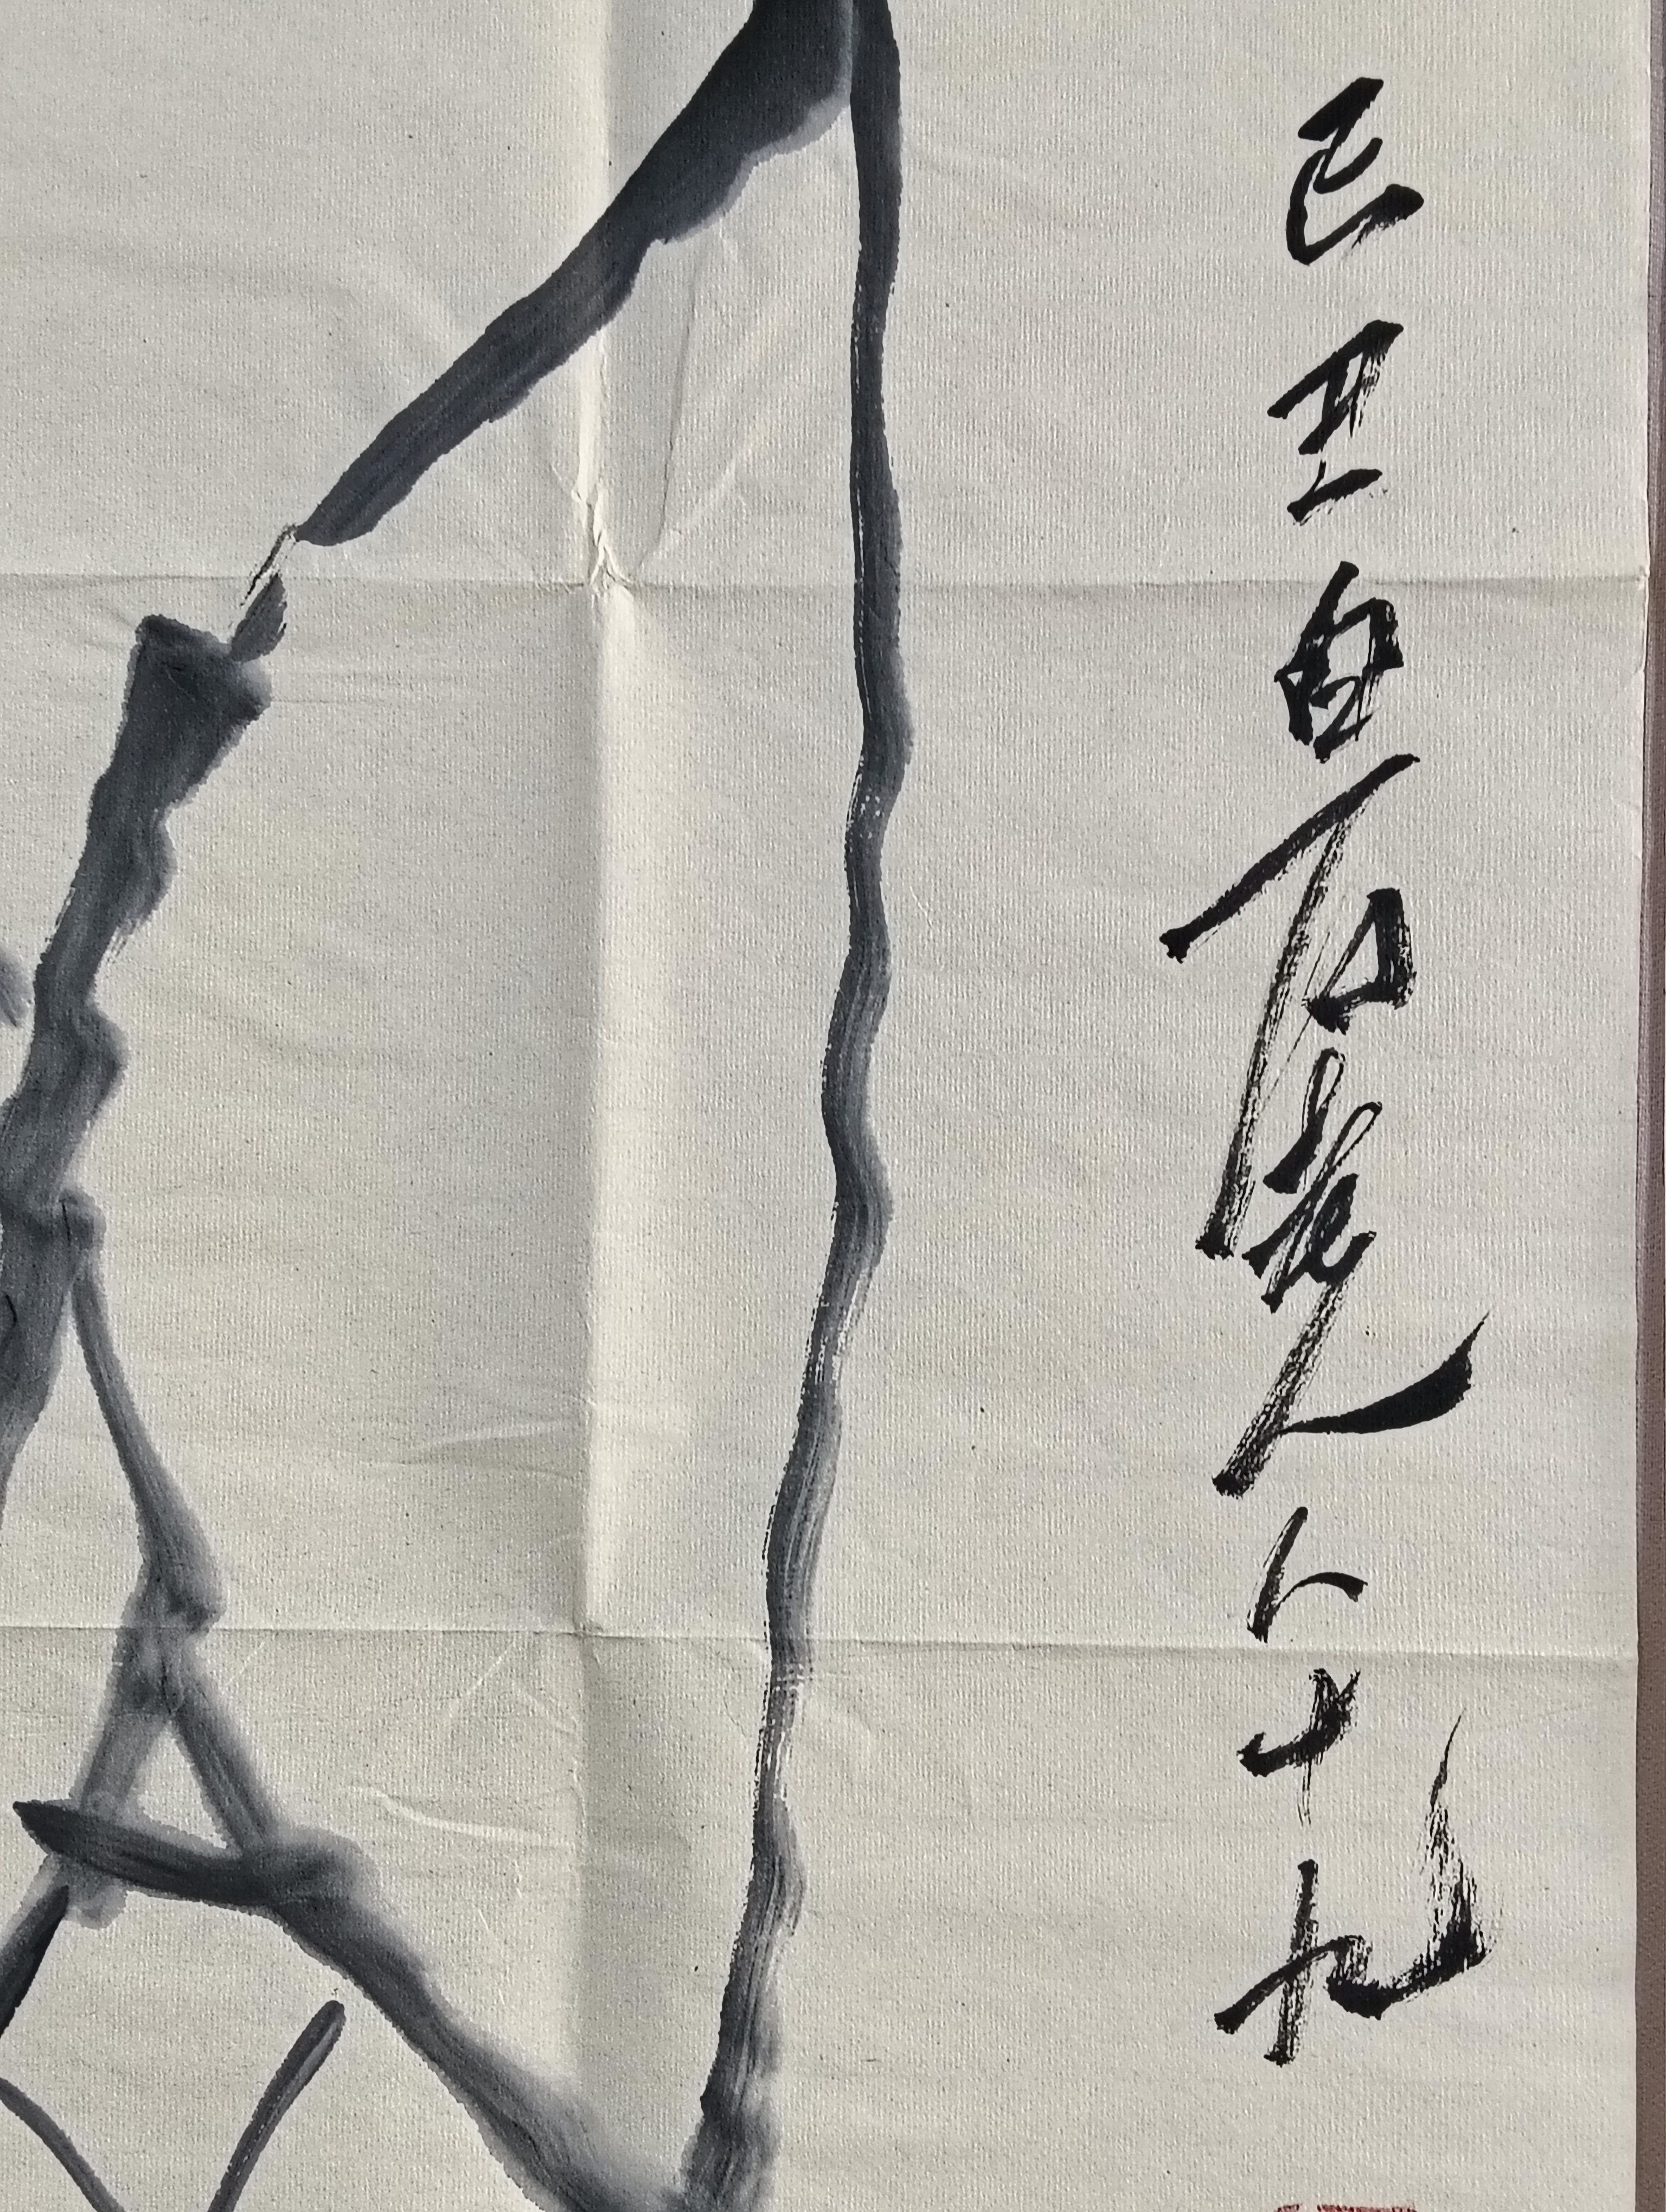 己丑白石老人八十九